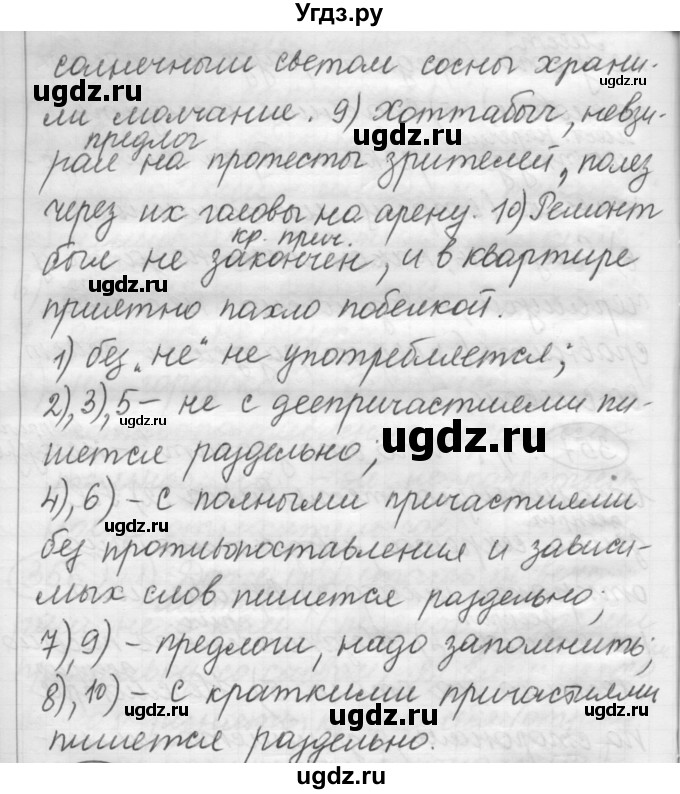 Угдз.ру
солнечным светом сосны храни-
ли молчание. 9) Хоттабыч, невзи-
предлог
рая на протесты зрителей, полез
через их головы на арену. 10) Ремонт
кр. прич.
был не закончен, и в квартире
приятно пахло побелкой.
1) без „не" не употребляется;
2), 3), 5 – не с деепричастиями пи-
шется раздельно;
4), 6) – с полными причастиями
без противопоставления и зависи-
мых слов пишется раздельно;
7), 9) – предлоги, надо запомнить;
8), 10) – с краткими причастиями
пишется раздельно.
ugdz.ru
ugdz.ru
ugdz.ru
ugdz.ru
ugdz.ru
ugdz.ru
ugdz.ru
ugdz.ru
ugdz.ru
ugdz.ru
ugdz.ru
ugdz.ru
ugdz.ru
ugdz.ru